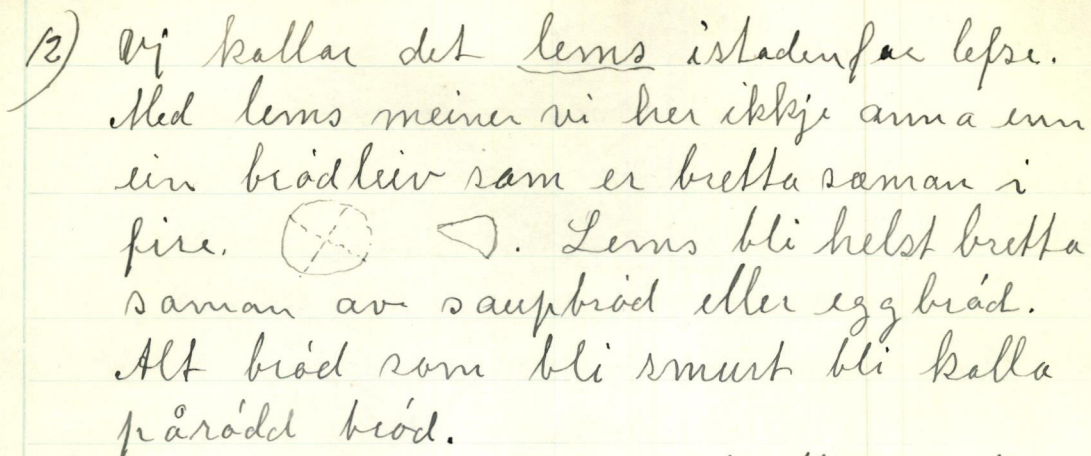 12) Vi kallar det lems istadenfor lefse.
Med lems meiner vi her ikkje anna enn
ein brödleiv som er bretta saman i
fire. . Lems bli helst bretta
saman av saupbröd eller eggbröd.
Alt bröd som bli smurt bli kalla
pårödd bröd.